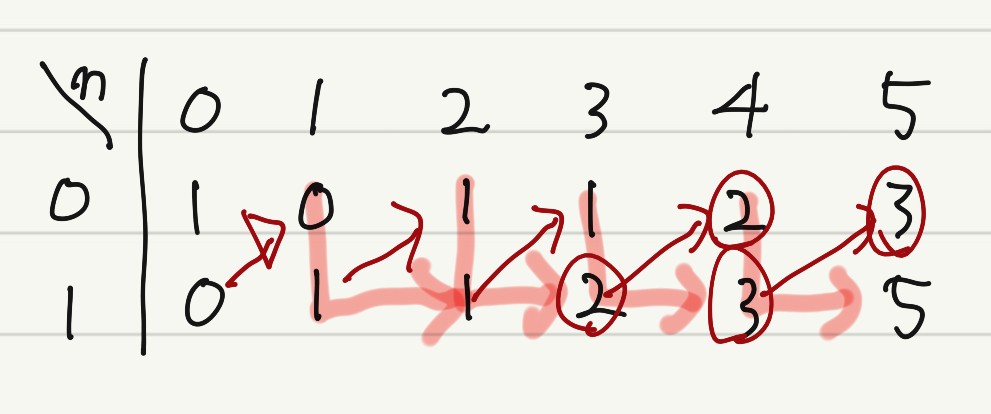 n 0 1 2 3 4 5
0 1 0 1 1 2 3
1 0 1 1 2 3 5